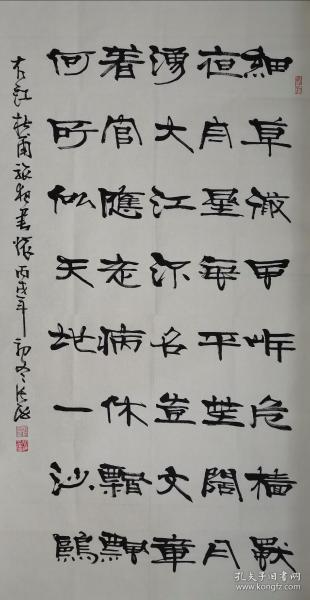 細草微風岸危檣獨
夜舟星垂平埜闊月
湧大江流名豈文章
着官應老病休飄飄
何所似天地一沙鷗
右錄杜甫旅夜書懷丙戌年初冬
孔夫子旧书网